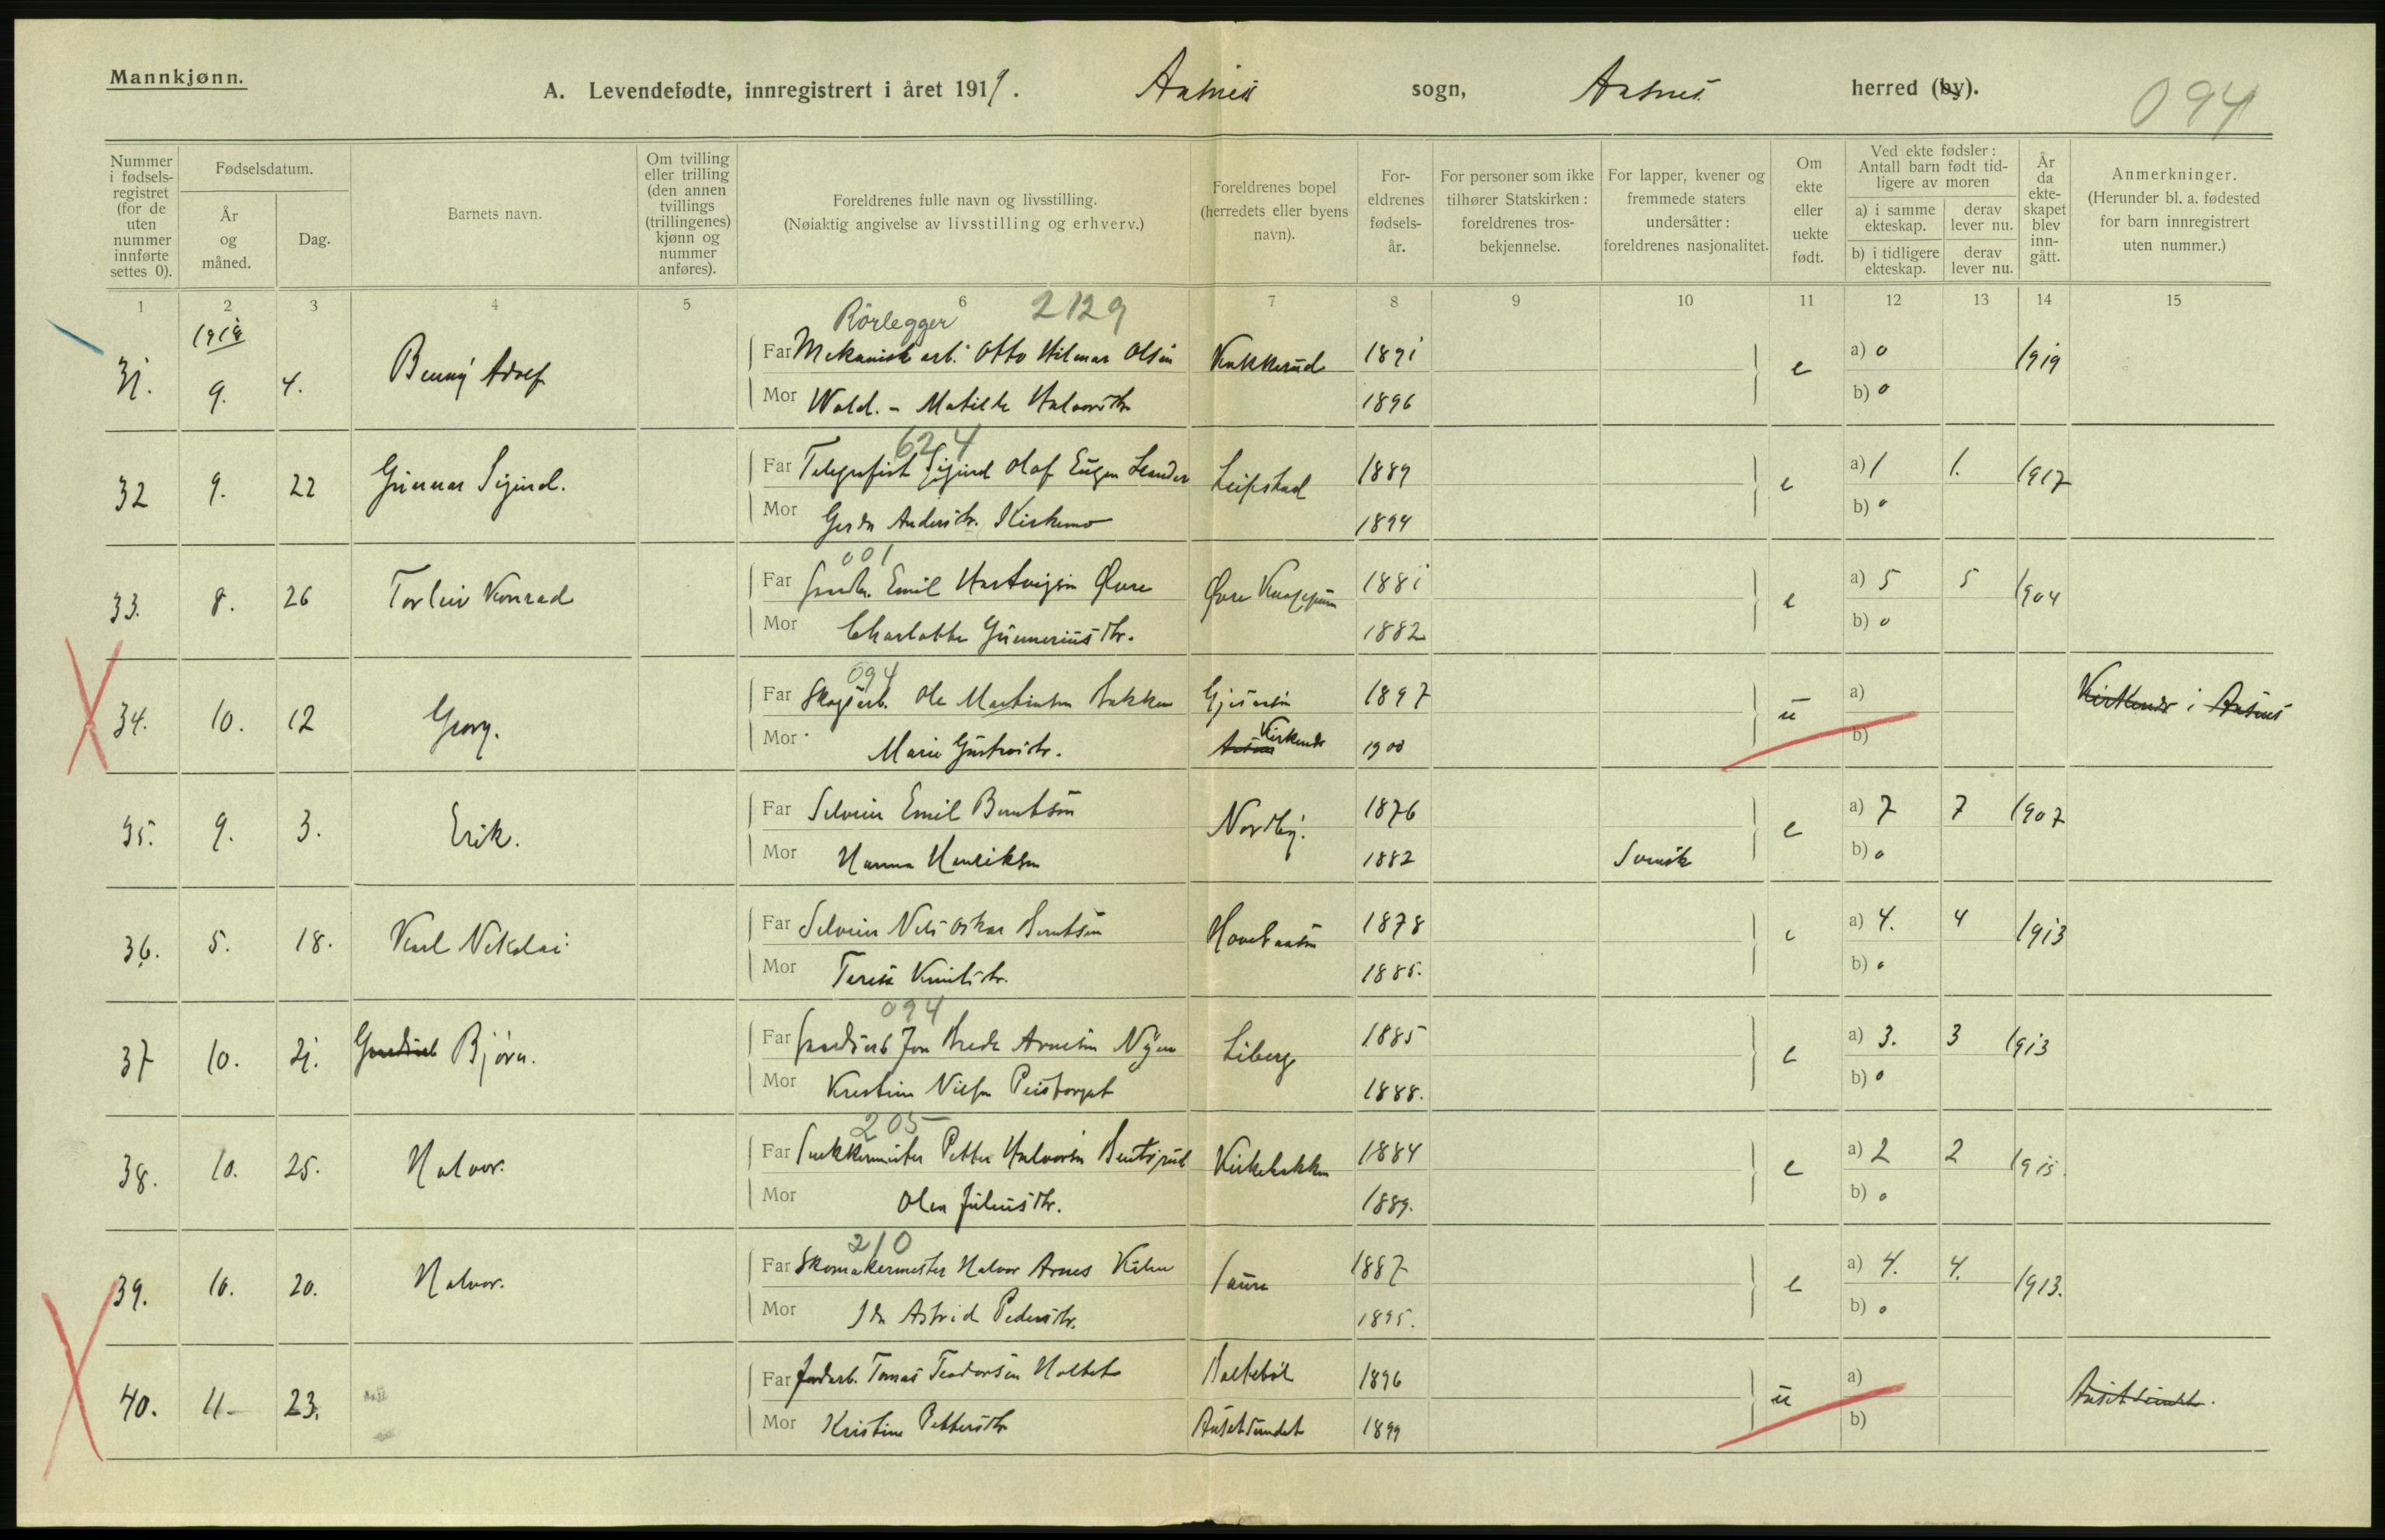 Mannkjønn.
A. Levendefødte, innregistrert i året 1919. Aasnes sogn, Aasnes herred (by).
094
Nummer i fødsels-registret (for de uten nummer innførte settes 0).
Fødselsdatum.
År og måned.
Dag.
Barnets navn.
Om tvilling eller trilling (den annen tvillings (trillingenes) kjønn og nummer anføres).
Foreldrenes fulle navn og livsstilling.
(Nøiaktig angivelse av livsstilling og erhverv.)
Foreldrenes bopel (herredets eller byens navn).
For-eldrenes fødsels-år.
For personer som ikke tilhører Statskirken: foreldrenes tros-bekjennelse.
For lapper, kvener og fremmede staters undersåtter: foreldrenes nasjonalitet.
Om ekte eller uekte født.
Ved ekte fødsler: Antall barn født tid-ligere av moren
a) i samme ekteskap.
derav lever nu.
b) i tidligere ekteskap.
derav lever nu.
År da ekte-skapet blev inn-gått.
Anmerkninger.
(Herunder bl. a. fødested for barn innregistrert uten nummer.)
1 2 3 4 5 6 7 8 9 10 11 12 13 14 15
1919
Rörlegger 2129
31. 9. 4. Benny Adolf Far Mekanisk arb. Otto Hilmar Olsen Kakkerud 1891 e a) 0 1919
Mor Wald. - Matilde Halvorsdtr 1896 b) 0
624
32 9. 22 Gunnar Sigurd. Far Telegrafist Sigurd Olaf Eugen Leipstad 1889 e a) 1 1. 1917
Mor Gerda Andersdtr. Kirkemo 1894 b) 0
001
33. 8. 26 Torleiv Konrad Far Emil Hartvigsen Øvre Øvre 1881 e a) 5 5 1904
Mor Charlotte Gunneriusdtr. 1882 b) 0
094
34. 10. 12 Georg. Far Skogsarb. Ole Martinsen Bakken Gjesaasen 1897 u a) Kirkenær i Aasnes
Mor Marie Gustavsdtr. Aasnes Kirkenær 1900 b)
35. 9. 3. Erik. Far Selveier Emil Berntsen Nordby. 1876 e a) 7 7 1907
Mor Hanna Henriksen 1882 Svensk b) 0
36. 5. 18. Karl Nikolai Far Selveier Nils Oskar Berntsen 1878 e a) 4. 4 1913
Mor Terese 1885. b) 0
094
37 10. 21. Bjørn. Far Jon Arnesen Liberg 1885 e a) 3. 3 1913
Mor Kristine Nilsen 1888. b) 0
205
38. 10. 25. Halvor. Far Snekkermester Petter Halvorsen Kirkebakken 1884 e a) 2 2 1915.
Mor Olea Juliusdtr. 1889. b) 0
210
39. 10. 20. Halvor. Far Skomakermester Halvor Arnes 1887 e a) 4. 4. 1913.
Mor Ida Astrid Pedersdtr. 1895. b) 0
40. 11 - 23. Far Jordarb. Tomas Teodorsen Holtet 1896 u a)
Mor Kristine Pettersdtr Auset Sundet 1899 b)